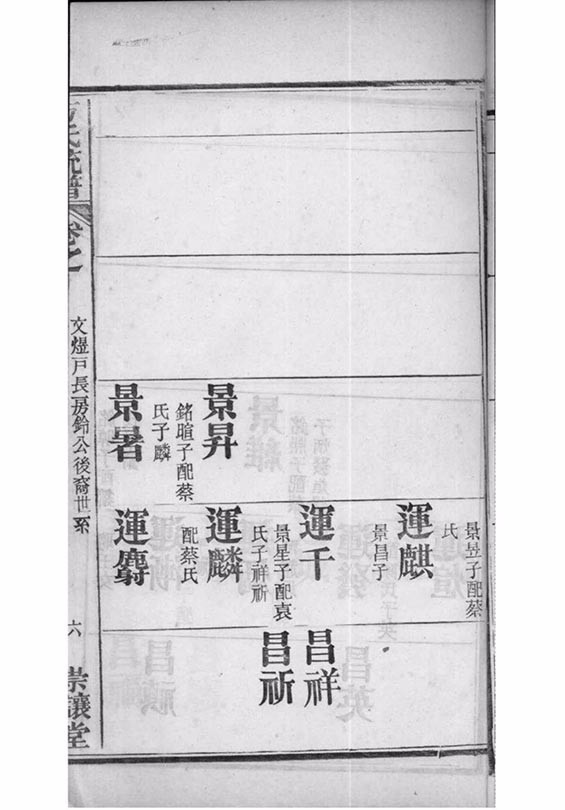 景昇
銘暄子配蔡
氏子麟
景暑
景昱子配蔡
氏
運麒
景昌子
運千
景星子配袁
氏子祥祈
運麟
配蔡氏
運麝
昌祥
昌祈
氏統譜
卷之
文煜戶長房鈴公後裔世系
六
崇讓堂